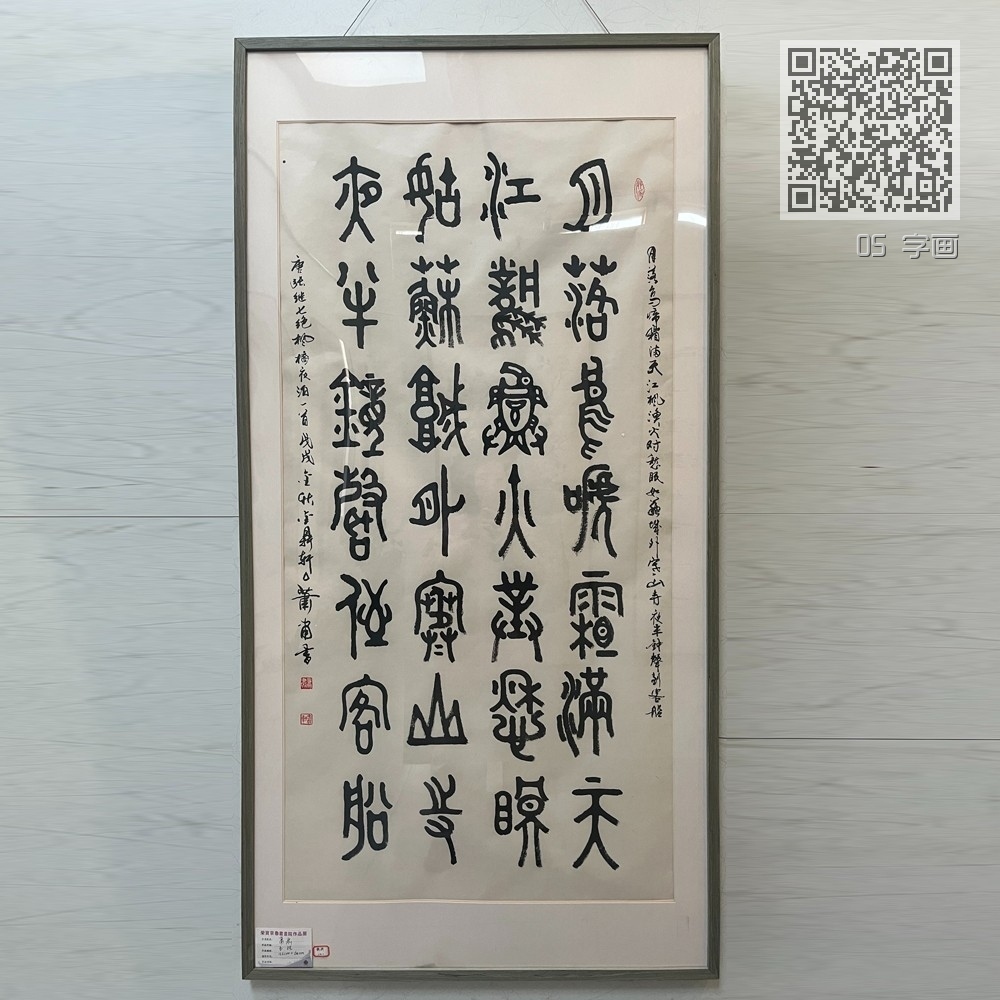 05 字画
月落烏啼霜滿天江楓漁火對愁眠姑蘇城外寒山寺夜半鐘聲到客船
月落烏啼霜滿天
江楓漁火對愁眠
姑蘇城外寒山寺
夜半鐘聲到客船
唐張继七绝楓橋夜泊一首戊戌金秋金鼎軒